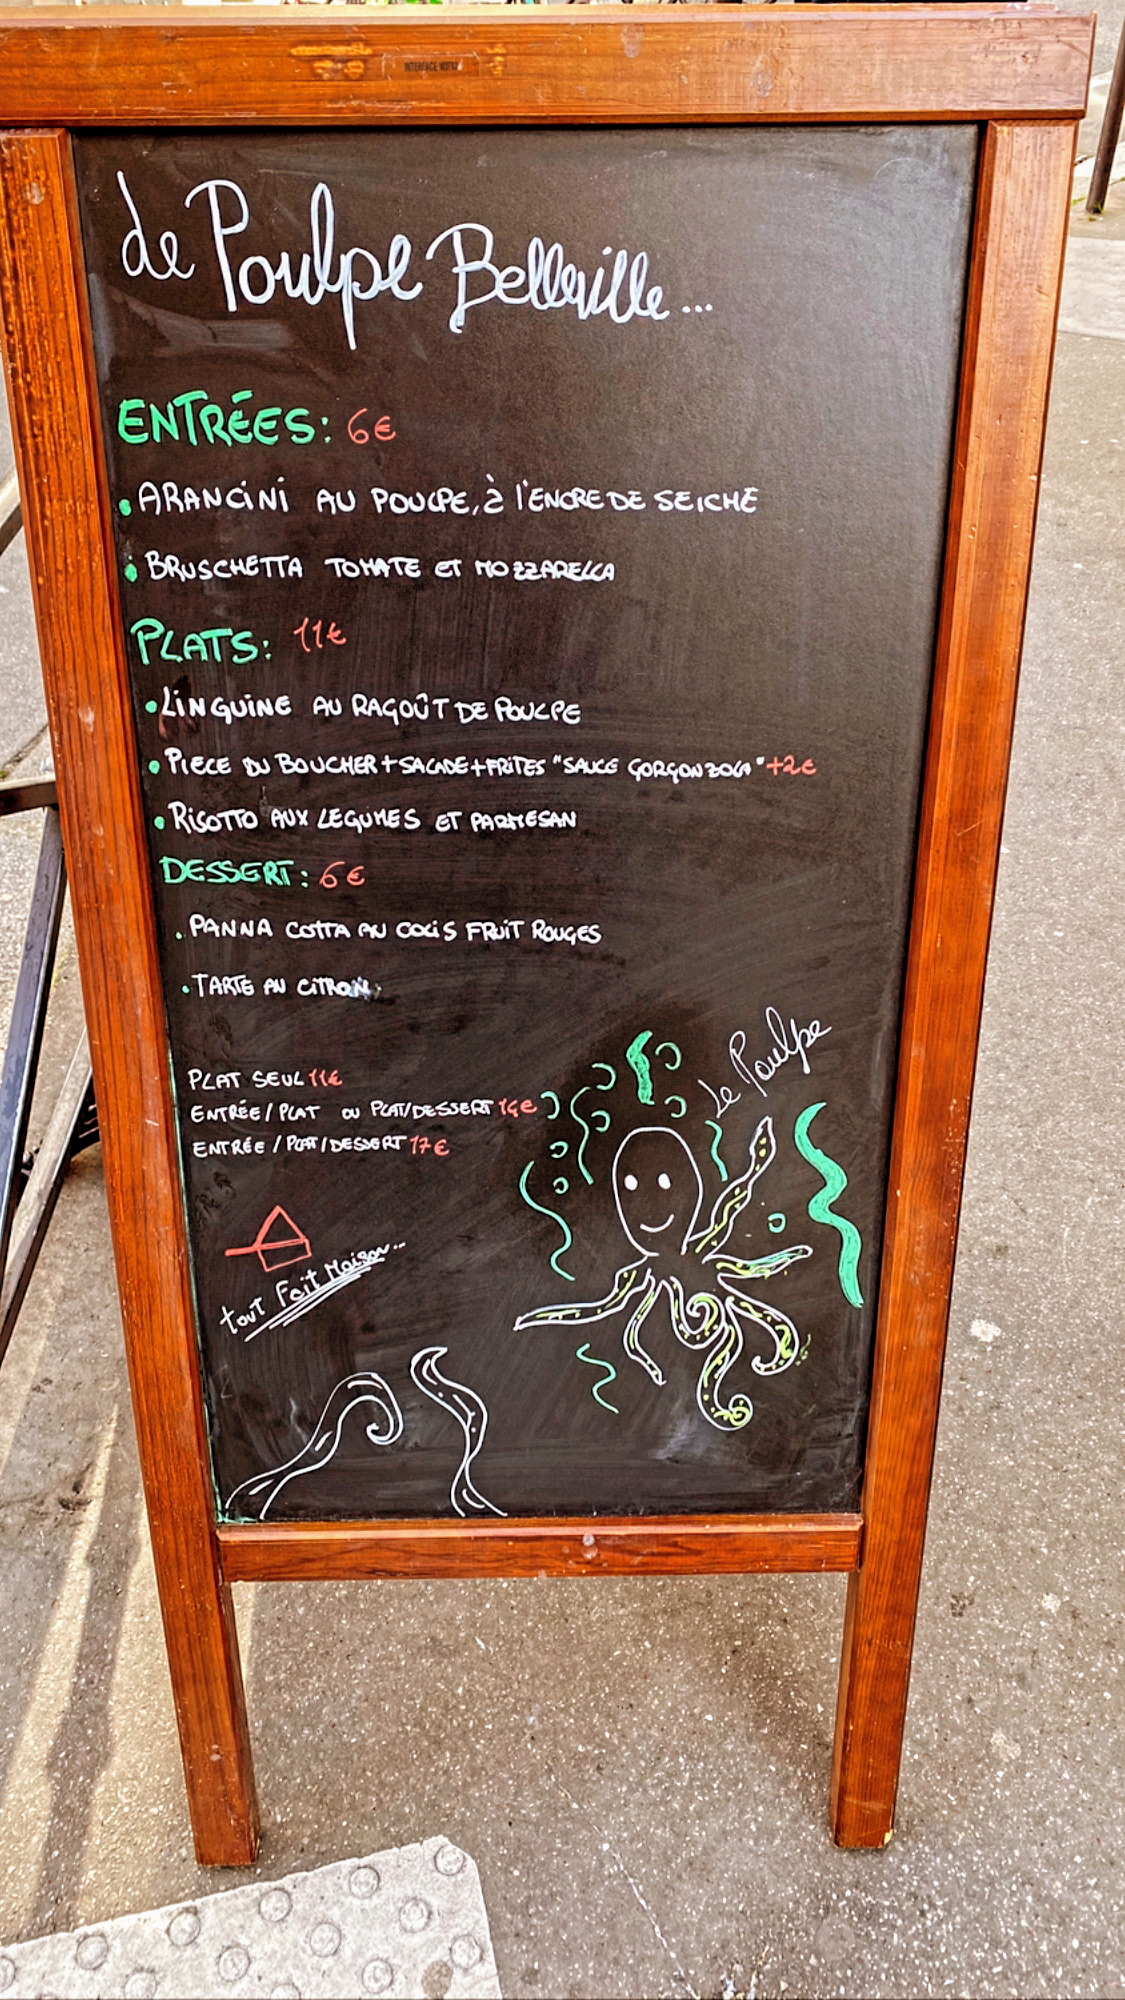 Le Poulpe Belleville...
ENTRÉES: 6€
• ARANCINI AU POULPE, À L'ENCRE DE SEICHE
• BRUSCHETTA TOMATE ET MOZZARELLA
PLATS: 11€
• LINGUINE AU RAGOÛT DE POULPE
• PIECE DU BOUCHER + SALADE + FRITES "SAUCE GORGONZOLA" +2€
• RISOTTO AUX LEGUMES ET PARMESAN
DESSERT: 6€
• PANNA COTTA AU COLIS FRUIT ROUGES
• TARTE AU CITRON
PLAT SEUL 11€
ENTRÉE / PLAT OU PLAT/DESSERT 14€
ENTRÉE / PLAT / DESSERT 17€
Le Poulpe
tout Fait Maison...